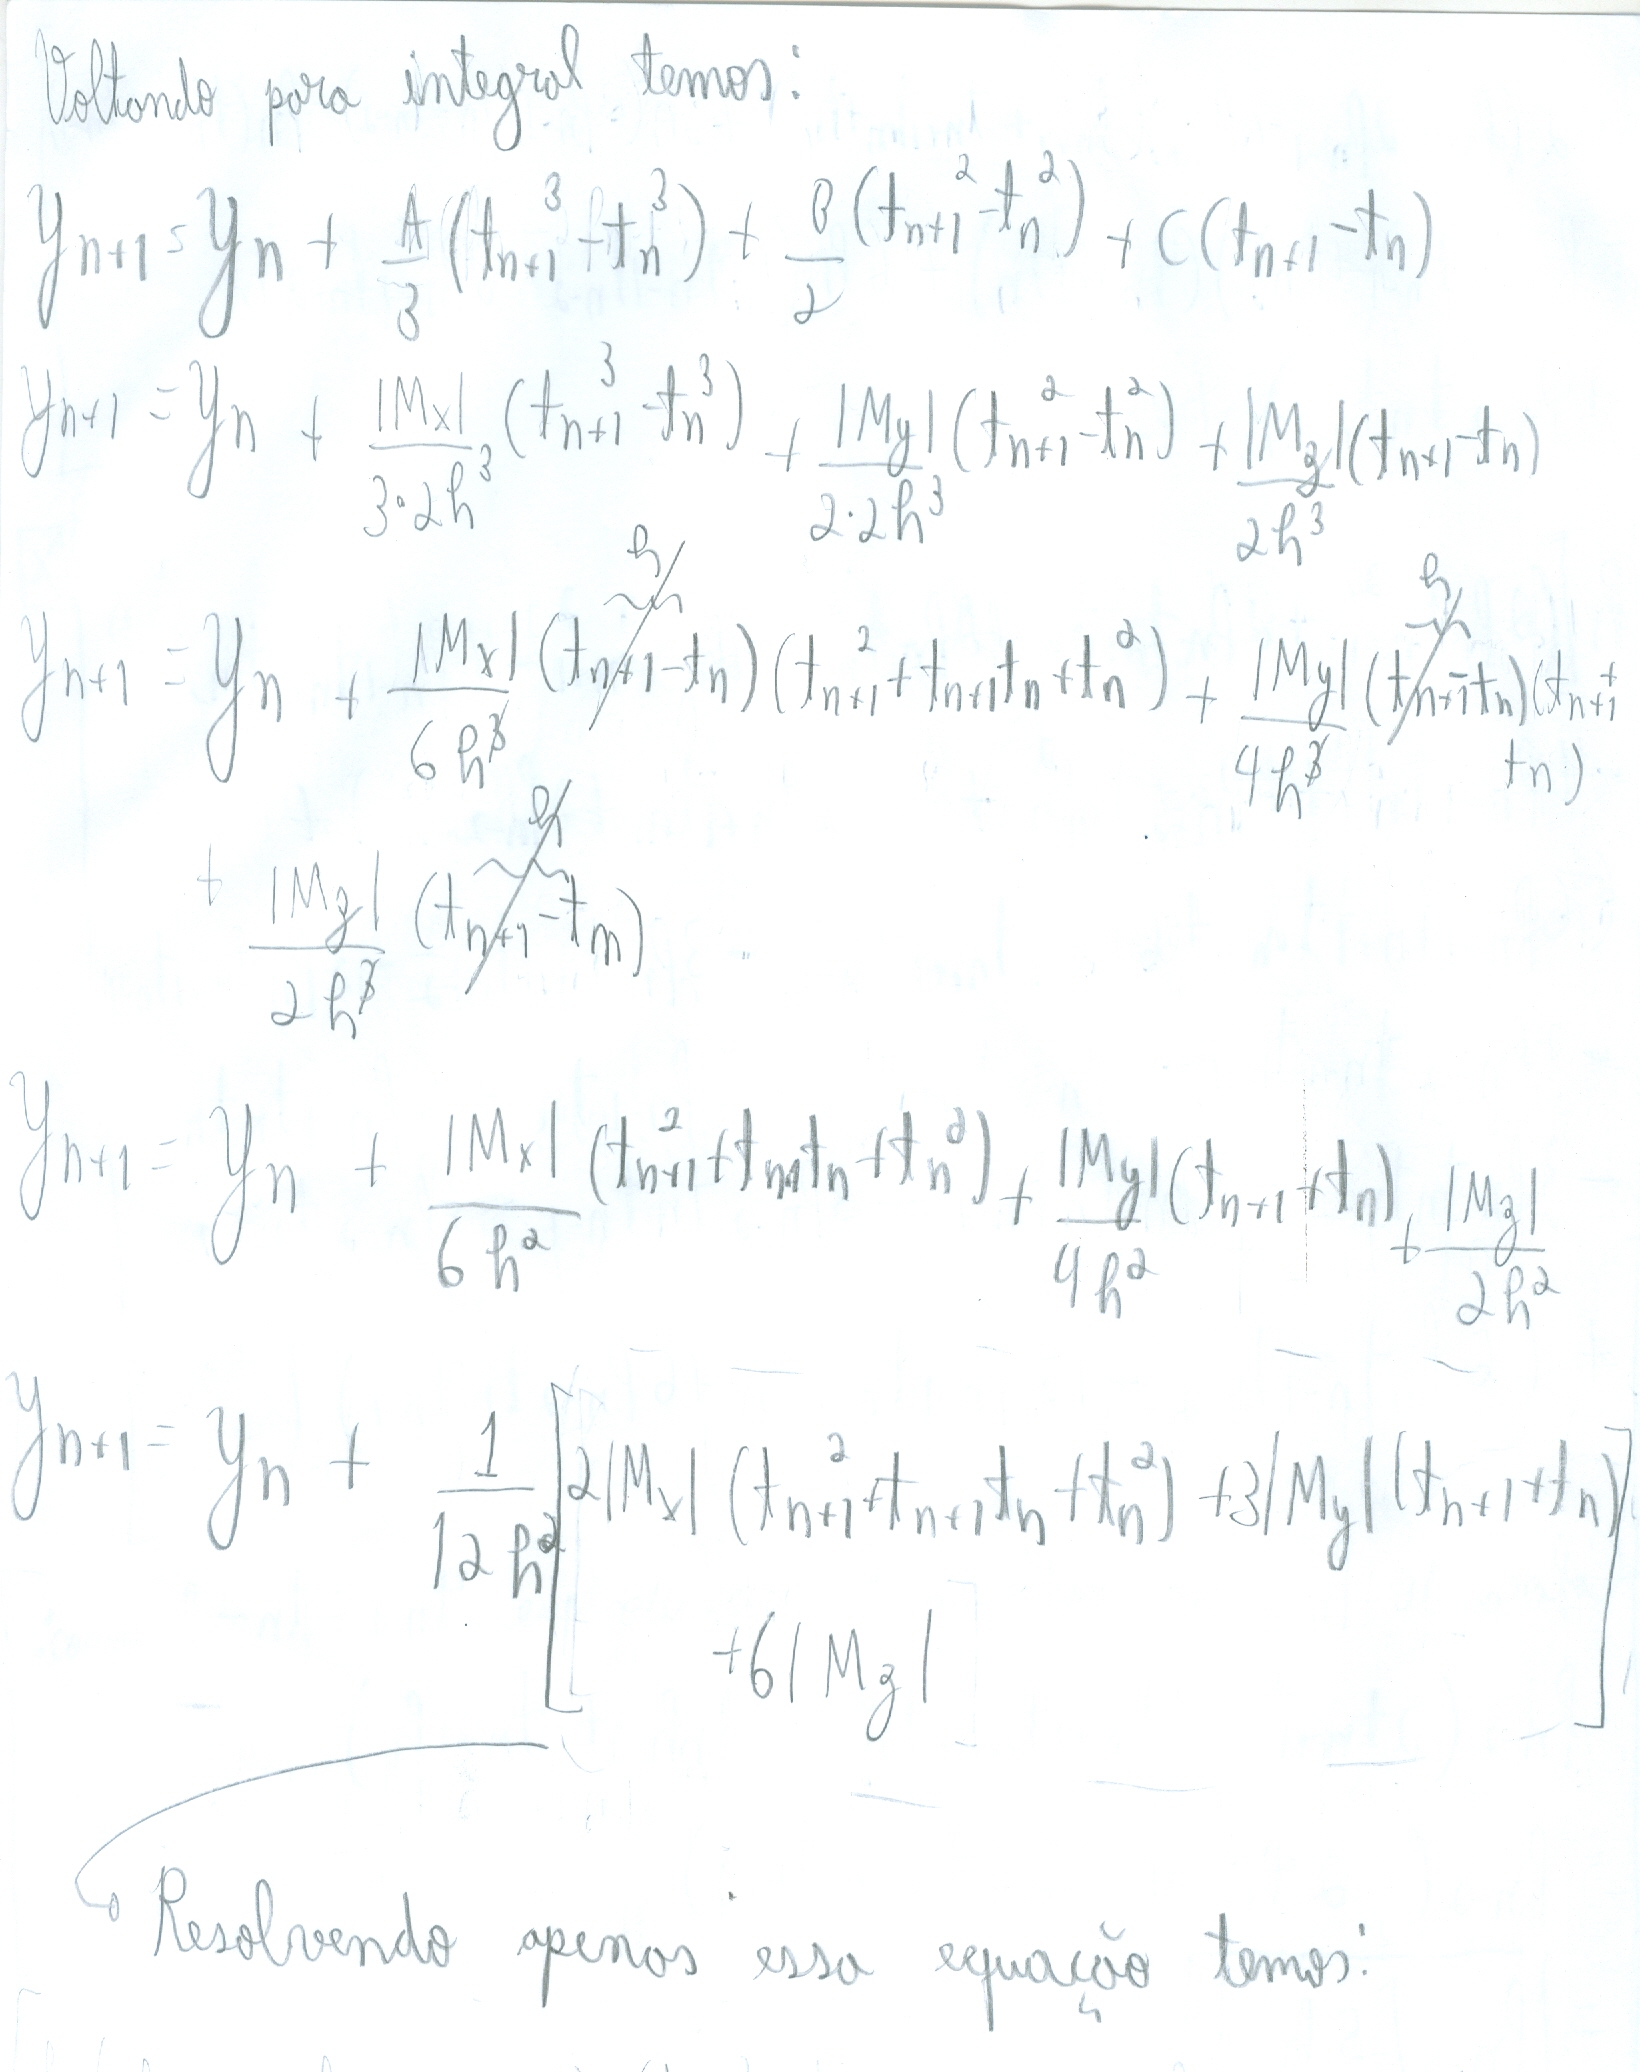 Voltando para integral temos:
y_{n+1} = y_n + A/3 (t_{n+1}^3 - t_n^3) + B/2 (t_{n+1}^2 - t_n^2) + C(t_{n+1} - t_n)
y_{n+1} = y_n + |M_x|/(3·2h^3) (t_{n+1}^3 - t_n^3) + |M_y|/(2·2h^3) (t_{n+1}^2 - t_n^2) + |M_z|/(2h^3) (t_{n+1} - t_n)
h h
y_{n+1} = y_n + |M_x|/(6h^3) (t_{n+1} - t_n)(t_{n+1}^2 + t_{n+1}t_n + t_n^2) + |M_y|/(4h^3) (t_{n+1} - t_n)(t_{n+1} +
t_n)
h
+ |M_z|/(2h^3) (t_{n+1} - t_n)
y_{n+1} = y_n + |M_x|/(6h^2) (t_{n+1}^2 + t_{n+1}t_n + t_n^2) + |M_y|/(4h^2) (t_{n+1} + t_n) + |M_z|/(2h^2)
y_{n+1} = y_n + 1/(12h^2) [2|M_x| (t_{n+1}^2 + t_{n+1}t_n + t_n^2) + 3|M_y| (t_{n+1} + t_n)
+ 6|M_z| ]
Resolvendo apenas essa equação temos: